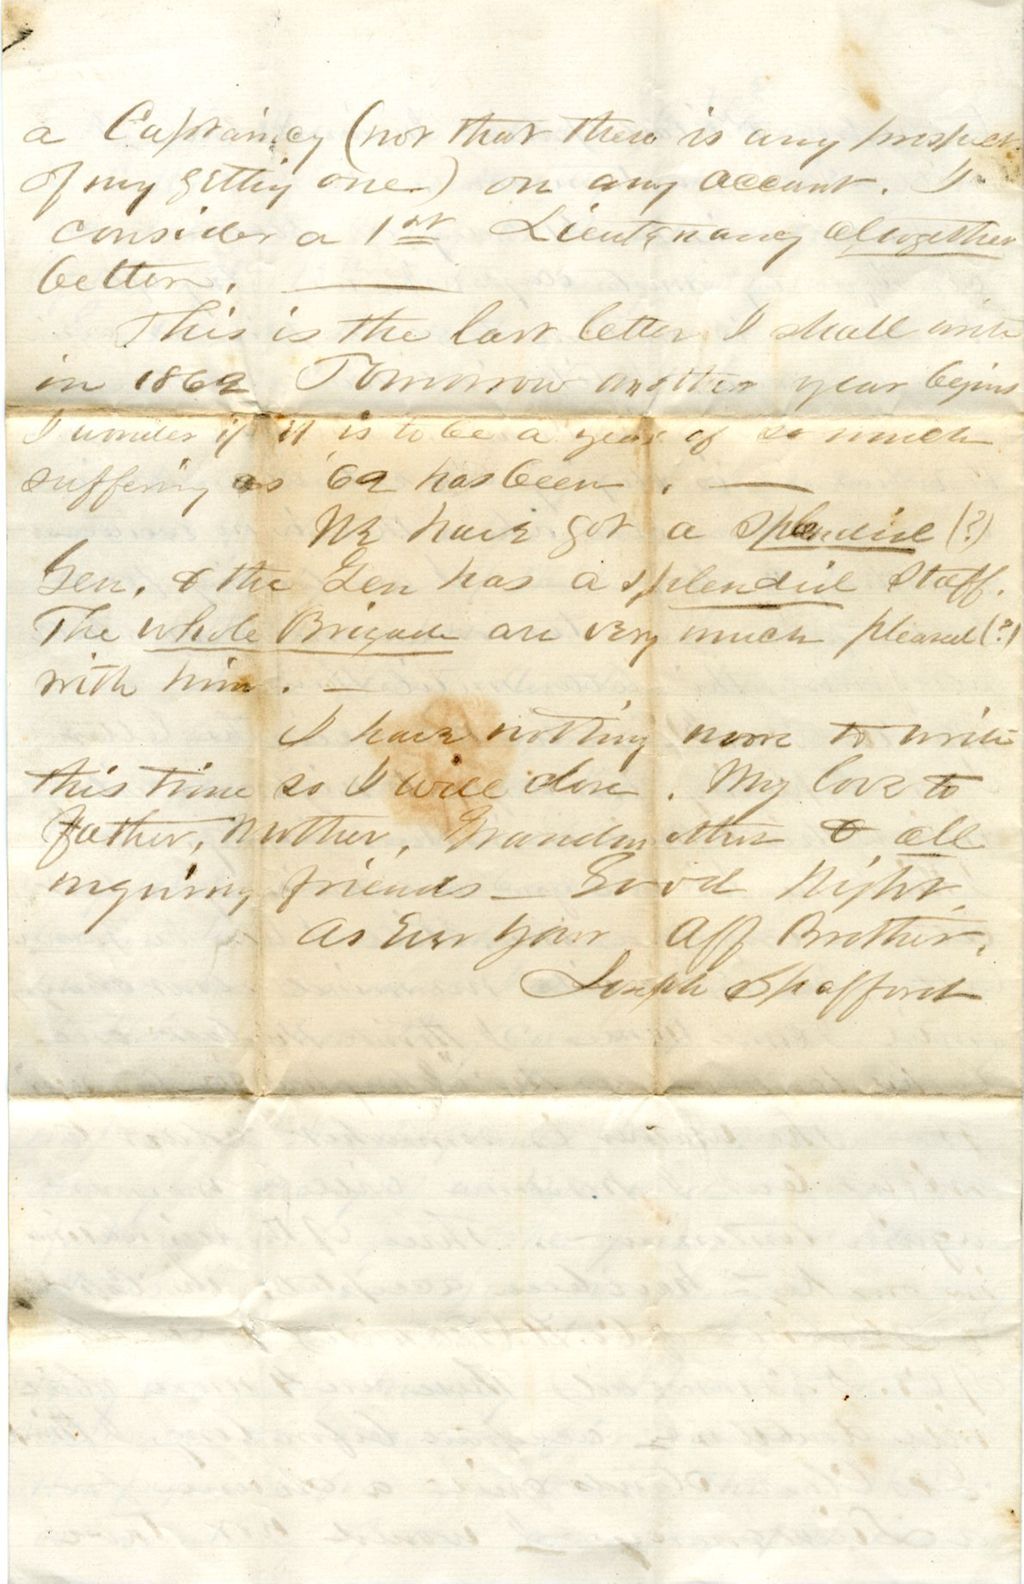 a Captaincy (not that there is any prospect
of my getting one) on any account. I
consider a 1st Lieutenancy altogether
better. —
This is the last letter I shall write
in 1862 Tomorrow another year begins
I wonder if it is to be a year of so much
suffering as '62 has been. —
We have got a splendid (?)
Gen. & the Gen has a splendid Staff.
The whole Brigade are very much pleased (?)
with him. —
I have nothing more to write
this time so I will close. My love to
Father, Mother, Grandmother & all
inquiring friends — Good Night,
As Ever Your Aff Brother,
Joseph Spafford